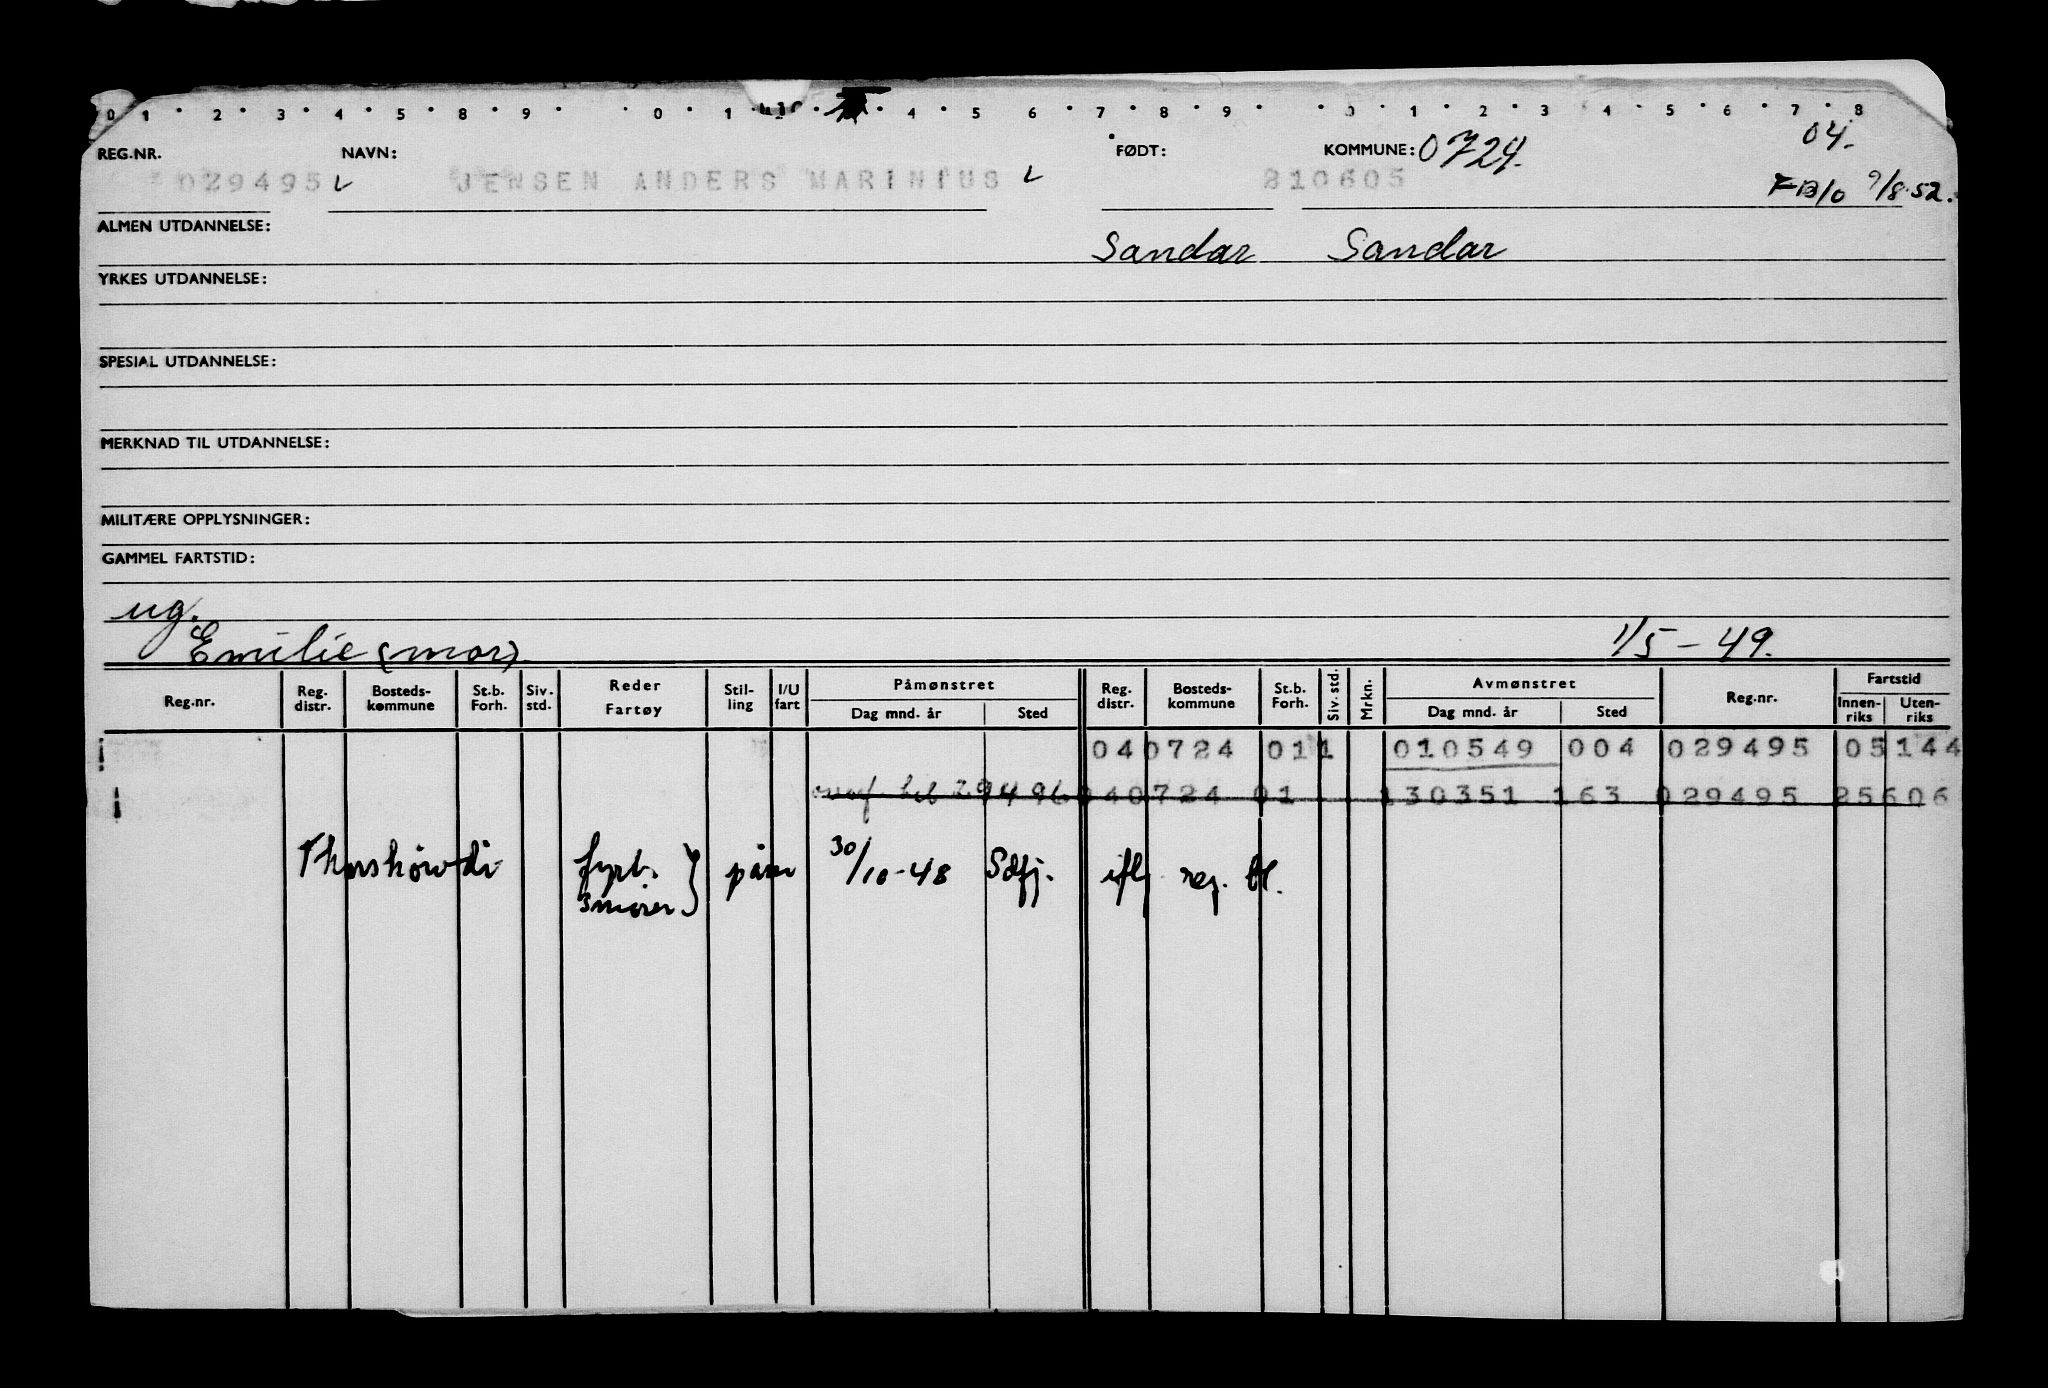 0 1 2 3 4 5 8 9 0 1 4 5 6 7 8 9 0 1 2 3 4 5 6 7 8
REG.NR. NAVN: FØDT: KOMMUNE: 0724. 04.
029495 JENSEN ANDERS MARINIUS 210605 FB/o 9/8.52.
ALMEN UTDANNELSE: Sandar Sandar
YRKES UTDANNELSE:
SPESIAL UTDANNELSE:
MERKNAD TIL UTDANNELSE:
MILITÆRE OPPLYSNINGER:
GAMMEL FARTSTID:
ug.
Emilie (mor) 1/5 - 49.
Reg.nr. Reg. distr. Bosteds-kommune St.b. Forh. Siv. std. Reder Fartøy Stil-ling I/U fart Påmønstret Dag mnd. år Sted Reg. distr. Bosteds-kommune St.b. Forh. Siv. std. Mrkn. Avmønstret Dag mnd. år Sted Reg.nr. Fartstid Innen-riks Uten-riks
040724 011 010549 004 029495 05144
29496 040724 01 130351 163 029495 25606
Thorshøvdi fyrb. smører } påm 30/10-48 Sdfj. ifl reg. bl.